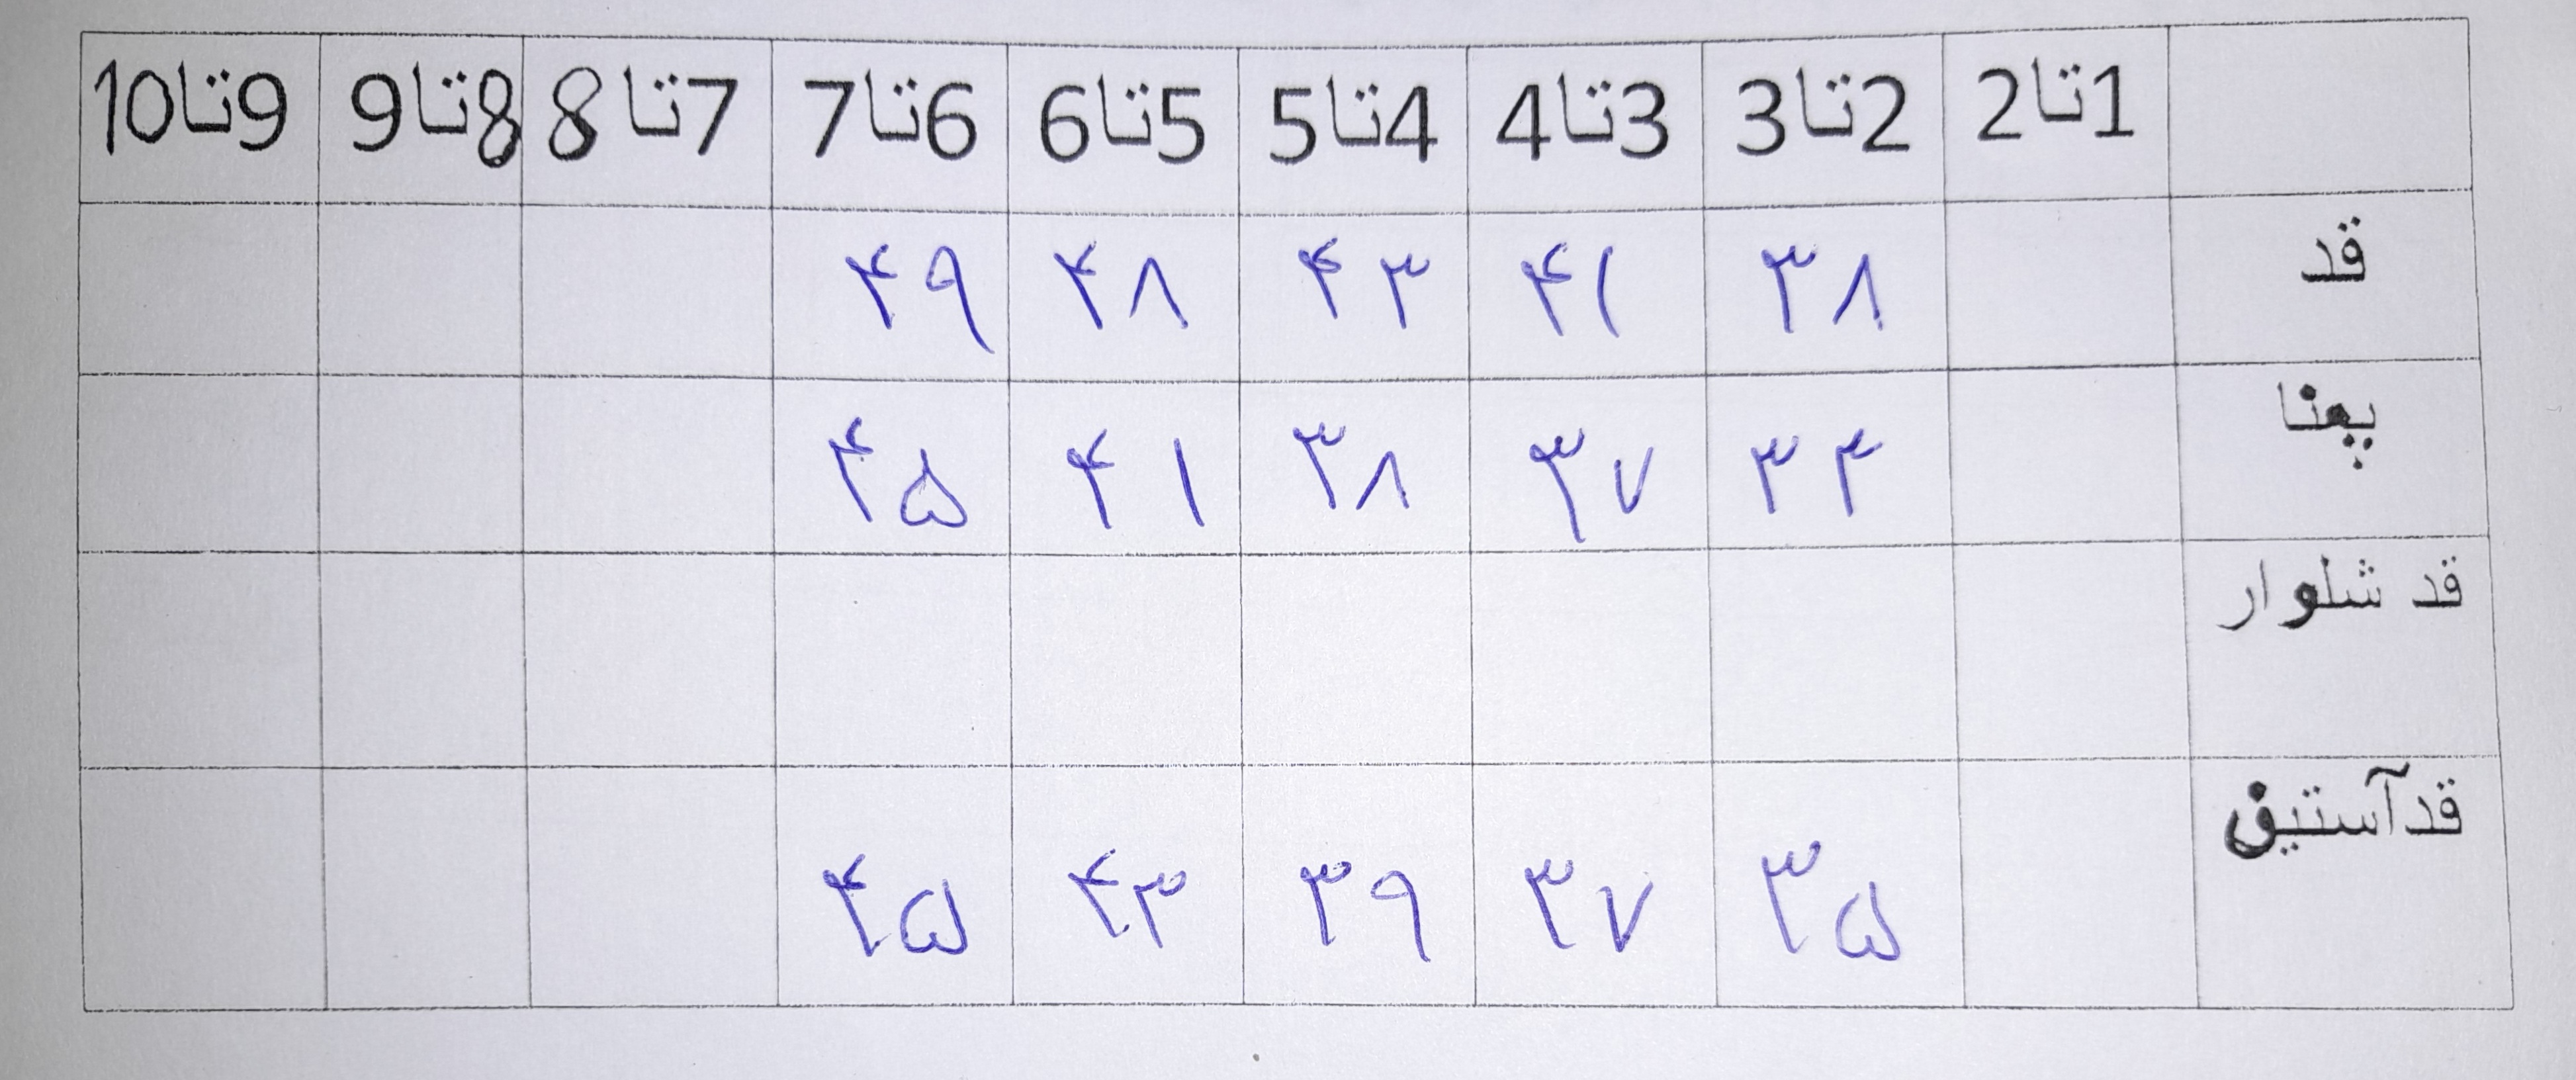 1تا2 2تا3 3تا4 4تا5 5تا6 6تا7 7تا8 8تا9 9تا10
قد ۳۸ ۴۱ ۴۳ ۴۸ ۴۹
پهنا ۳۴ ۳۷ ۳۸ ۴۱ ۴۵
قد شلوار
قدآستین ۳۵ ۳۷ ۳۹ ۴۳ ۴۵